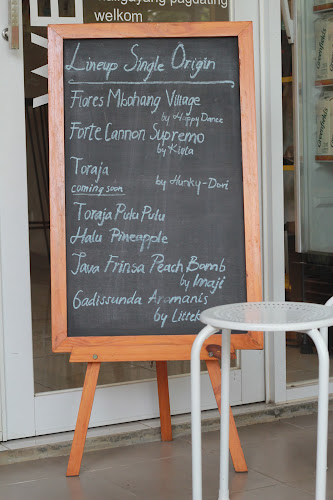 maligayang pagdating
welkom
WE
Lineup Single Origin
Flores Mbohang Village
by Happy Dance
Forte Cannon Supremo
by Kiota
Toraja
by Hunky-Dori
coming soon
Toraja Pulu Pulu
Halu Pineapple
Java Frinsa Peach Bomb
by Imaji
Gadissunda Aromanis